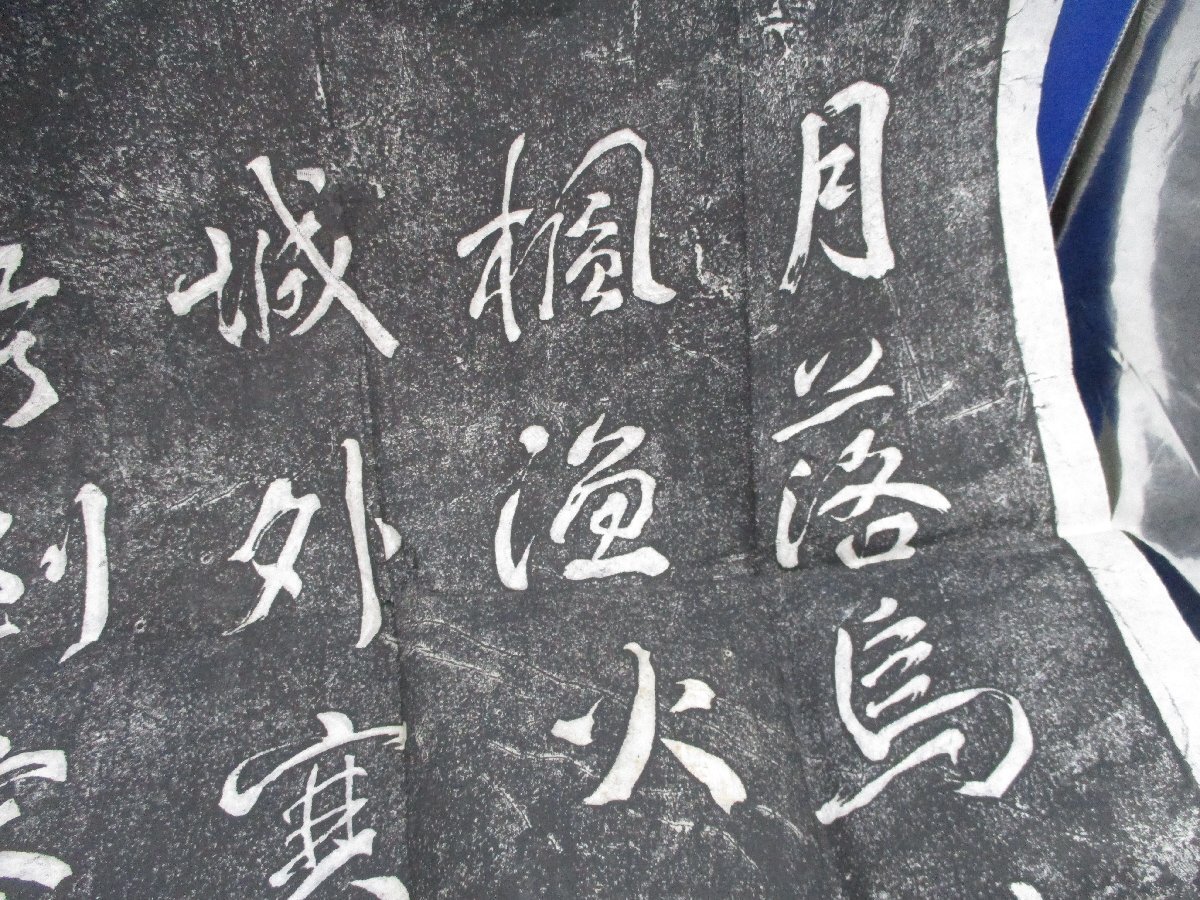 月落烏
楓漁火
城外寒
到